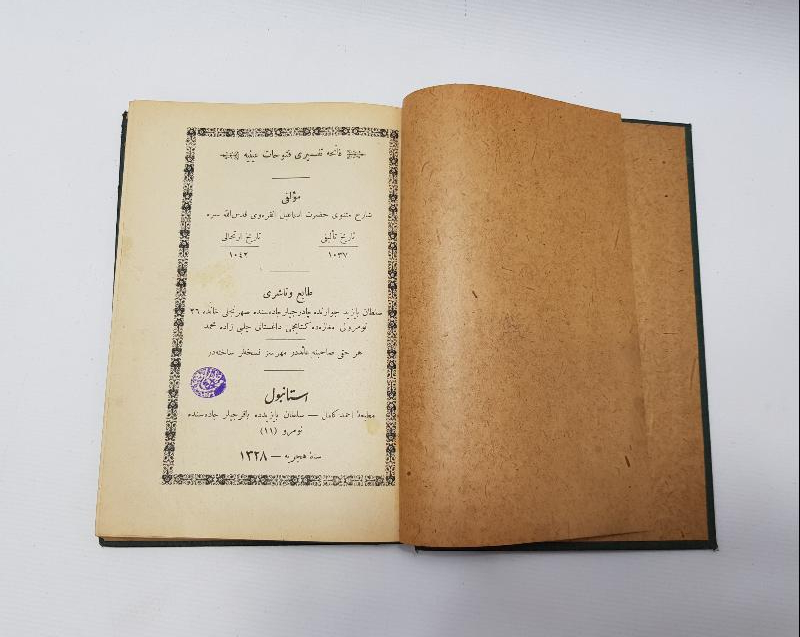 فاتحه تفسیری فتوحات عینیه
مؤلفی
شارح مثنوی حضرت اسماعیل انقروی قدس‌الله سره
تاریخ تألیفی
تاریخ ارتحالی
١٠٣٧
١٠٤٢
طابع و ناشری
سلطان بایزید جوارنده چادرجیلر جاده‌سنده ٢٦
نومرولی مغازه‌ده کتابجی داغستانی چلبی زاده محمد
هر حقی صاحبنه عائددر مهرسز نسخه‌لر ساخته‌در
استانبول
مطبعهٔ احمد کامل — سلطان بایزیدده باقرجیلر جاده‌سنده
نومرو (١١)
سنهٔ هجریه — ١٣٢٨